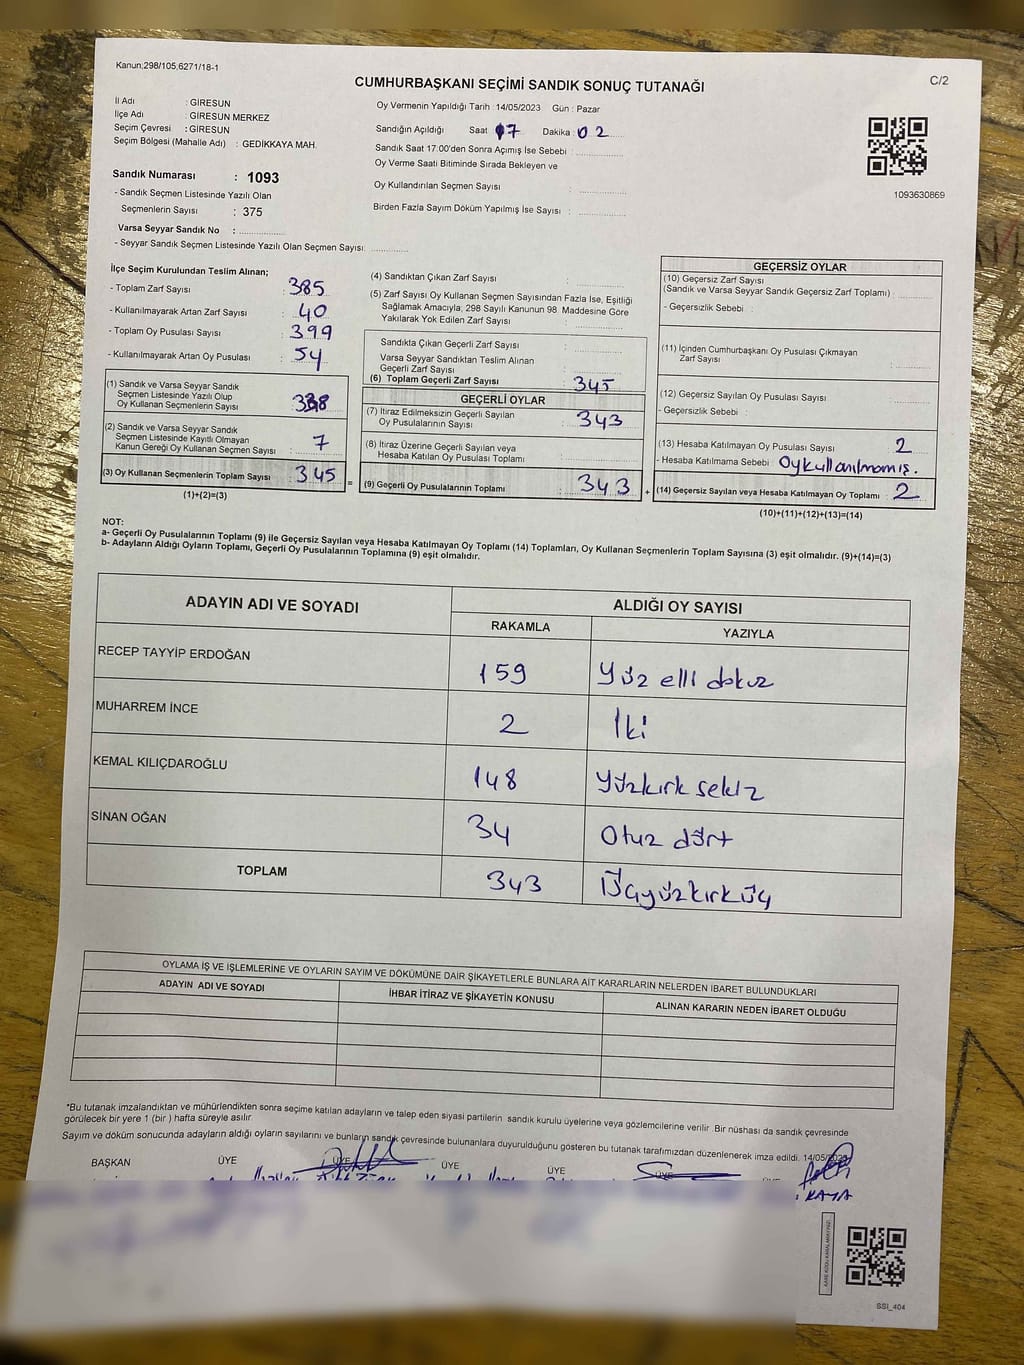 Kanun;298/105,6271/18-1
C/2
CUMHURBAŞKANI SEÇİMİ SANDIK SONUÇ TUTANAĞI
İl Adı : GİRESUN
İlçe Adı : GİRESUN MERKEZ
Seçim Çevresi : GİRESUN
Seçim Bölgesi (Mahalle Adı) : GEDİKKAYA MAH.
Oy Vermenin Yapıldığı Tarih : 14/05/2023 Gün : Pazar
Sandığın Açıldığı Saat 17 Dakika : 02
Sandık Saat 17.00'den Sonra Açımış İse Sebebi :
Oy Verme Saati Bitiminde Sırada Bekleyen ve
Oy Kullandırılan Seçmen Sayısı :
Birden Fazla Sayım Döküm Yapılmış İse Sayısı :
1093630869
Sandık Numarası : 1093
- Sandık Seçmen Listesinde Yazılı Olan
Seçmenlerin Sayısı : 375
Varsa Seyyar Sandık No :
- Seyyar Sandık Seçmen Listesinde Yazılı Olan Seçmen Sayısı:
İlçe Seçim Kurulundan Teslim Alınan;
- Toplam Zarf Sayısı : 385
- Kullanılmayarak Artan Zarf Sayısı : 40
- Toplam Oy Pusulası Sayısı : 399
- Kullanılmayarak Artan Oy Pusulası : 54
(1) Sandık ve Varsa Seyyar Sandık
Seçmen Listesinde Yazılı Olup
Oy Kullanan Seçmenlerin Sayısı : 338
(2) Sandık ve Varsa Seyyar Sandık
Seçmen Listesinde Kayıtlı Olmayan
Kanun Gereği Oy Kullanan Seçmen Sayısı : 7
(3) Oy Kullanan Seçmenlerin Toplam Sayısı : 345 =
(1)+(2)=(3)
(4) Sandıktan Çıkan Zarf Sayısı :
(5) Zarf Sayısı Oy Kullanan Seçmen Sayısından Fazla İse, Eşitliği
Sağlamak Amacıyla; 298 Sayılı Kanunun 98. Maddesine Göre
Yakılarak Yok Edilen Zarf Sayısı :
Sandıkta Çıkan Geçerli Zarf Sayısı :
Varsa Seyyar Sandıktan Teslim Alınan
Geçerli Zarf Sayısı :
(6) Toplam Geçerli Zarf Sayısı : 345
GEÇERLİ OYLAR
(7) İtiraz Edilmeksizin Geçerli Sayılan
Oy Pusulalarının Sayısı : 343
(8) İtiraz Üzerine Geçerli Sayılan veya
Hesaba Katılan Oy Pusulası Toplamı :
(9) Geçerli Oy Pusulalarının Toplamı : 343 +
GEÇERSİZ OYLAR
(10) Geçersiz Zarf Sayısı
(Sandık ve Varsa Seyyar Sandık Geçersiz Zarf Toplamı) :
- Geçersizlik Sebebi :
(11) İçinden Cumhurbaşkanı Oy Pusulası Çıkmayan
Zarf Sayısı :
(12) Geçersiz Sayılan Oy Pusulası Sayısı :
- Geçersizlik Sebebi :
(13) Hesaba Katılmayan Oy Pusulası Sayısı : 2
- Hesaba Katılmama Sebebi : Oy kullanılmamış.
(14) Geçersiz Sayılan veya Hesaba Katılmayan Oy Toplamı : 2
(10)+(11)+(12)+(13)=(14)
NOT:
a- Geçerli Oy Pusulalarının Toplamı (9) ile Geçersiz Sayılan veya Hesaba Katılmayan Oy Toplamı (14) Toplamları, Oy Kullanan Seçmenlerin Toplam Sayısına (3) eşit olmalıdır. (9)+(14)=(3)
b- Adayların Aldığı Oyların Toplamı, Geçerli Oy Pusulalarının Toplamına (9) eşit olmalıdır.
ADAYIN ADI VE SOYADI ALDIĞI OY SAYISI
RAKAMLA YAZIYLA
RECEP TAYYİP ERDOĞAN 159 Yüz elli dokuz
MUHARREM İNCE 2 İki
KEMAL KILIÇDAROĞLU 148 Yüzkırk sekiz
SİNAN OĞAN 34 Otuz dört
TOPLAM 343 Üçyüzkırküç
OYLAMA İŞ VE İŞLEMLERİNE VE OYLARIN SAYIM VE DÖKÜMÜNE DAİR ŞİKAYETLERLE BUNLARA AİT KARARLARIN NELERDEN İBARET BULUNDUKLARI
ADAYIN ADI VE SOYADI İHBAR İTİRAZ VE ŞİKAYETİN KONUSU ALINAN KARARIN NEDEN İBARET OLDUĞU
*Bu tutanak imzalandıktan ve mühürlendikten sonra seçime katılan adayların ve talep eden siyasi partilerin sandık kurulu üyelerine veya gözlemcilerine verilir. Bir nüshası da sandık çevresinde
görülecek bir yere 1 (bir) hafta süreyle asılır.
Sayım ve döküm sonucunda adayların aldığı oyların sayılarını ve bunların sandık çevresinde bulunanlara duyurulduğunu gösteren bu tutanak tarafımızdan düzenlenerek imza edildi. 14/05/2023
BAŞKAN ÜYE ÜYE ÜYE ÜYE ÜYE
KAYA
SSI_404